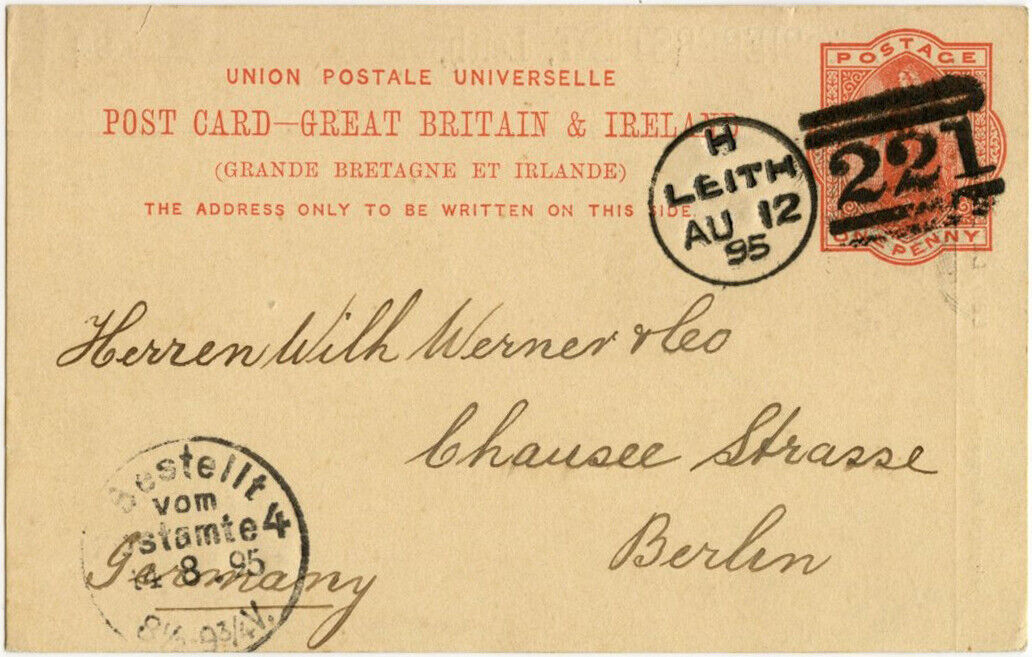 UNION POSTALE UNIVERSELLE
POST CARD—GREAT BRITAIN & IRELAND
(GRANDE BRETAGNE ET IRLANDE)
THE ADDRESS ONLY TO BE WRITTEN ON THIS SIDE.
POSTAGE
ONE PENNY
221
H
LEITH
AU 12
95
Herren Wilh Werner & Co
Chausee Strasse
Berlin
Germany
Bestellt
vom
stamte 4
14 8 95
8½-9¾V.